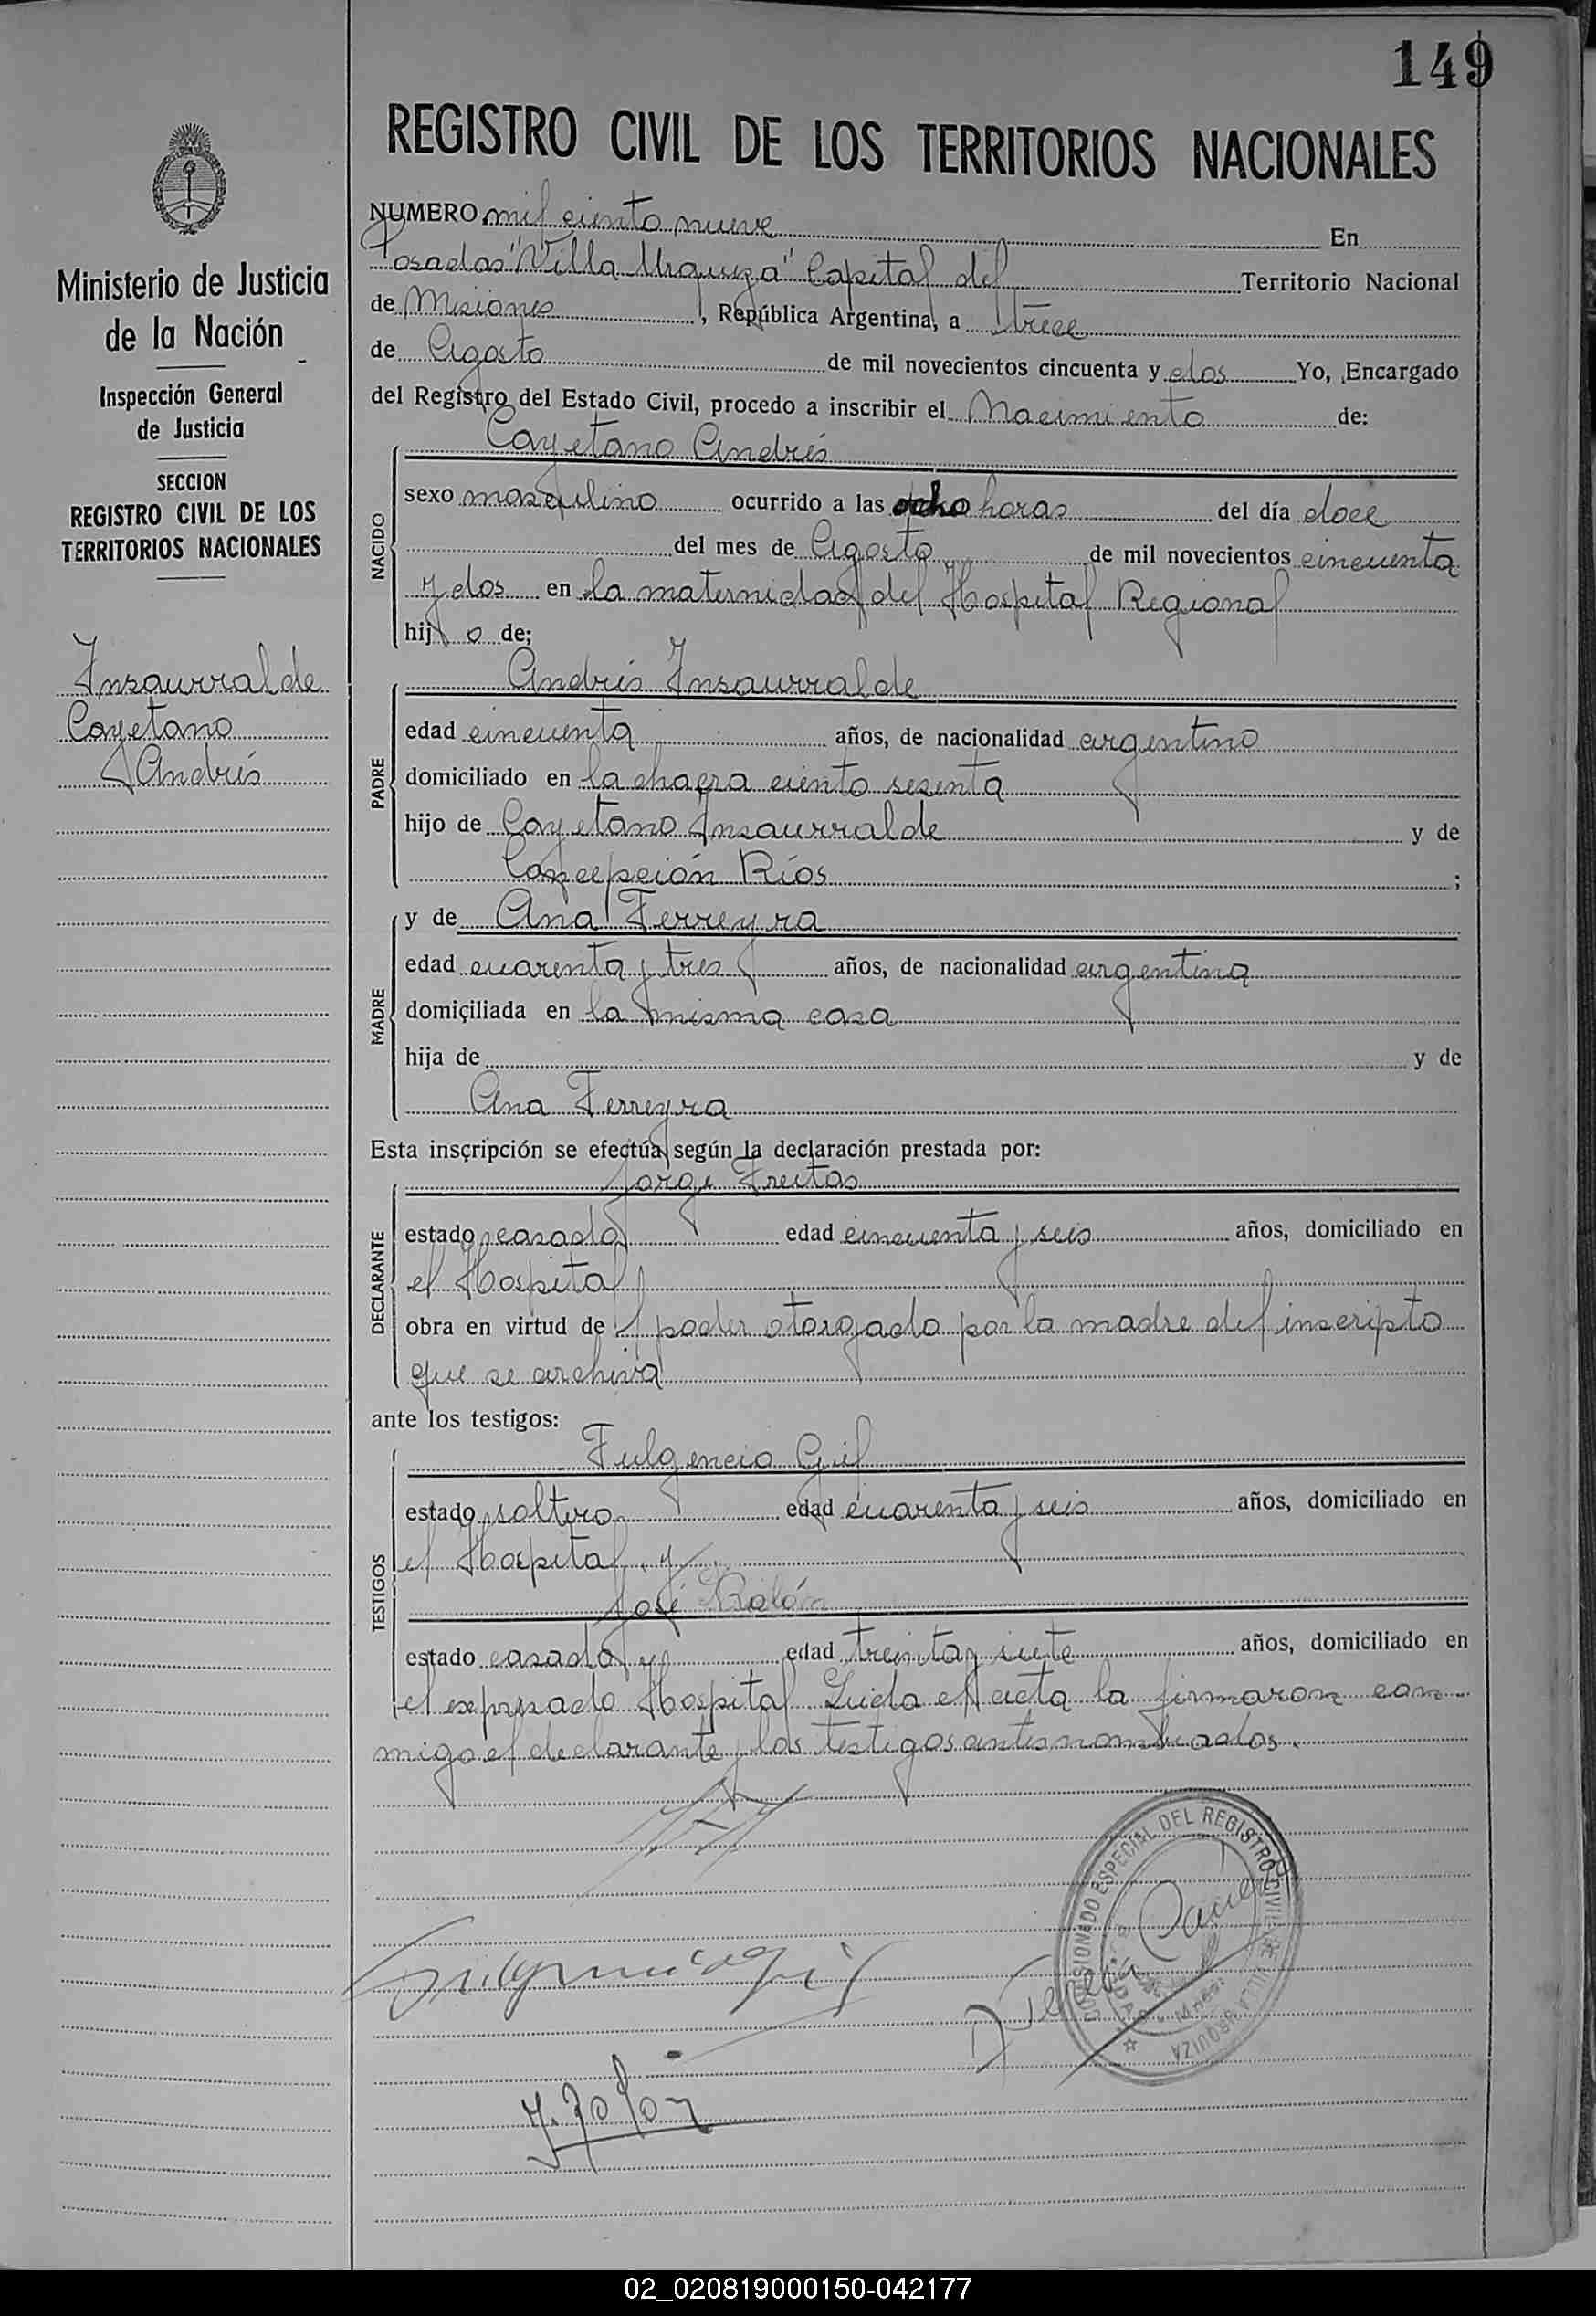 149
REGISTRO CIVIL DE LOS TERRITORIOS NACIONALES
Ministerio de Justicia
de la Nación
Inspección General
de Justicia
SECCION
REGISTRO CIVIL DE LOS
TERRITORIOS NACIONALES
Insaurralde
Cayetano
Andrés
NUMERO mil ciento nueve En
Posadas "Villa Urquiza" Capital del Territorio Nacional
de Misiones, República Argentina, a trece
de Agosto de mil novecientos cincuenta y dos Yo, Encargado
del Registro del Estado Civil, procedo a inscribir el Nacimiento de:
Cayetano Andrés
NACIDO
sexo masculino ocurrido a las ocho horas del día doce
del mes de Agosto de mil novecientos cincuenta
y dos en la maternidad del Hospital Regional
hijo de;
Andrés Insaurralde
PADRE
edad cincuenta años, de nacionalidad argentino
domiciliado en la chacra ciento sesenta
hijo de Cayetano Insaurralde y de
Concepción Ríos ;
y de Ana Ferreyra
MADRE
edad cuarenta y tres años, de nacionalidad argentina
domiciliada en la misma casa
hija de y de
Ana Ferreyra
Esta inscripción se efectúa según la declaración prestada por:
Jorge Freitas
DECLARANTE
estado casado edad cincuenta y seis años, domiciliado en
el Hospital
obra en virtud del poder otorgado por la madre del inscripto
que se archiva
ante los testigos:
Fulgencio Gil
TESTIGOS
estado soltero edad cuarenta y seis años, domiciliado en
el Hospital y
José Rolón
estado casado edad treinta y siete años, domiciliado en
el expresado Hospital Leida el acta la firmaron con-
migo el declarante y los testigos antes nombrados.
COMISIONADO ESPECIAL DEL REGISTRO CIVIL
VILLA URQUIZA
Fulgencio Gil
J. Rolón
02_020819000150-042177